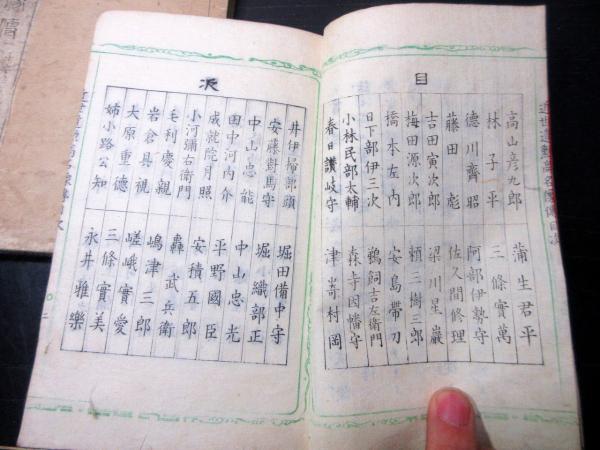 目
高山彦九郎 蒲生君平
林子平 三條實萬
德川齊昭 阿部伊勢守
藤田彪 佐久間修理
吉田寅次郎 梁川星巖
梅田源次郎 頼三樹三郎
橋本左内 安島帶刀
日下部伊三次 鵜飼吉左衛門
小林民部太輔 森寺因幡守
春日讃岐守 津嵜村岡
次
井伊掃部頭 堀田備中守
安藤對馬守 堀織部正
中山忠能 中山忠光
田中河内介 平野國臣
成就院月照 安積五郎
小河彌右衛門 轟武兵衛
毛利慶親 嶋津三郎
岩倉具視 嵯峨實愛
大原重德 三條實美
姉小路公知 永井雅樂